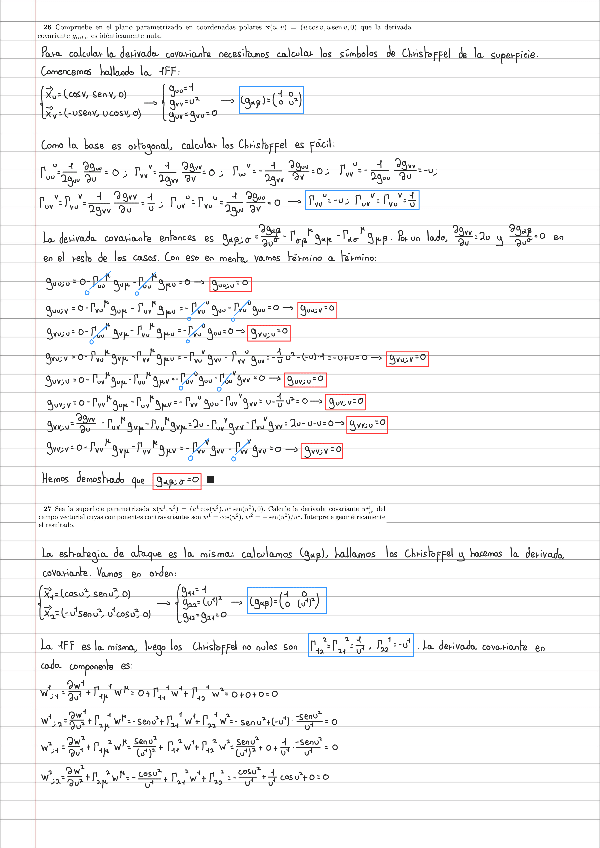 26 Compruebe en el plano parametrizado en coordenadas polares x(u, v) = (u cos v, u sen v, 0) que la derivada
covariante gαβ;σ es idénticamente nula.
Para calcular la derivada covariante necesitamos calcular los símbolos de Christoffel de la superficie.
Comencemos hallando la 1FF:
x⃗ᵤ=(cosv, senv, 0)
x⃗ᵥ=(-usenv, ucosv, 0) → guu=1 gvv=u² guv=gvu=0 → (gαβ)=(1 0 0 u²)
Como la base es ortogonal, calcular los Christoffel es fácil:
Γuu^u = 1/2guu ∂guu/∂u = 0 ; Γvv^v = 1/2gvv ∂gvv/∂v = 0 ; Γuu^v = - 1/2gvv ∂guu/∂v = 0 ; Γvv^u = - 1/2guu ∂gvv/∂u = -u ;
Γuv^v = Γvu^v = 1/2gvv ∂gvv/∂u = 1/u ; Γuv^u = Γvu^u = 1/2guu ∂guu/∂v = 0 → Γvv^u = -u ; Γuv^v = Γvu^v = 1/u
La derivada covariante entonces es gαβ;σ = ∂gαβ/∂u^σ - Γσβ^μ gαμ - Γασ^μ gμβ. Por un lado, ∂gvv/∂u = 2u y ∂gαβ/∂u^σ = 0 en
en el resto de los casos. Con eso en mente, vamos término a término:
guu;u = 0 - Γuu^μ guμ - Γuu^μ gμu = 0 → guu;u = 0
guu;v = 0 - Γvu^μ guμ - Γuv^μ gμu = -Γvu^u guu - Γuv^u guu = 0 → guu;v = 0
gvu;u = 0 - Γuu^μ gvμ - Γvu^μ gμu = -Γvu^u guu = 0 → gvu;u = 0
gvu;v = 0 - Γvu^μ gvμ - Γvv^μ gμu = -Γvu^v gvv - Γvv^u guu = -1/u u² - (-u)·1 = -u+u = 0 → gvu;v = 0
guv;u = 0 - Γuv^μ guμ - Γuu^μ gμv = -Γuv^u guu - Γuu^v gvv = 0 → guv;u = 0
guv;v = 0 - Γvv^μ guμ - Γuv^μ gμv = -Γvv^u guu - Γuv^v gvv = u - 1/u u² = 0 → guv;v = 0
gvv;u = ∂gvv/∂u - Γuv^μ gvμ - Γvu^μ gμv = 2u - Γuv^v gvv - Γvu^v gvv = 2u - u - u = 0 → gvv;u = 0
gvv;v = 0 - Γvv^μ gvμ - Γvv^μ gμv = -Γvv^v gvv - Γvv^v gvv = 0 → gvv;v = 0
Hemos demostrado que gαβ;σ = 0 ■
27 Sea la superficie parametrizada x(u¹, u²) = (u¹ cos(u²), u¹ sen(u²), 0). Calcule la derivada covariante del
campo vectorial cuyas componentes contravariantes son w¹ = cos(u²), w² = − sen(u²)/u¹. Interprete geométricamente
el resultado.
La estrategia de ataque es la misma: calculamos (gαβ), hallamos los Christoffel y hacemos la derivada
covariante. Vamos en orden:
x⃗₁=(cosu², senu², 0)
x⃗₂=(-u¹senu², u¹cosu², 0) → g₁₁=1 g₂₂=(u¹)² g₁₂=g₂₁=0 → (gαβ)=(1 0 0 (u¹)²)
La 1FF es la misma, luego los Christoffel no nulos son Γ₁₂² = Γ₂₁² = 1/u¹ , Γ₂₂¹ = -u¹ . La derivada covariante en
cada componente es:
w¹;₁ = ∂w¹/∂u¹ + Γ₁μ¹ w^μ = 0 + Γ₁₁¹ w¹ + Γ₁₂¹ w² = 0+0+0 = 0
w¹;₂ = ∂w¹/∂u² + Γ₂μ¹ w^μ = -senu² + Γ₂₁¹ w¹ + Γ₂₂¹ w² = -senu² + (-u¹) · -senu²/u¹ = 0
w²;₁ = ∂w²/∂u¹ + Γ₁μ² w^μ = senu²/(u¹)² + Γ₁₁² w¹ + Γ₁₂² w² = senu²/(u¹)² + 0 + 1/u¹ · -senu²/u¹ = 0
w²;₂ = ∂w²/∂u² + Γ₂μ² w^μ = -cosu²/u¹ + Γ₂₁² w¹ + Γ₂₂² w² = -cosu²/u¹ + 1/u¹ cosu² + 0 = 0